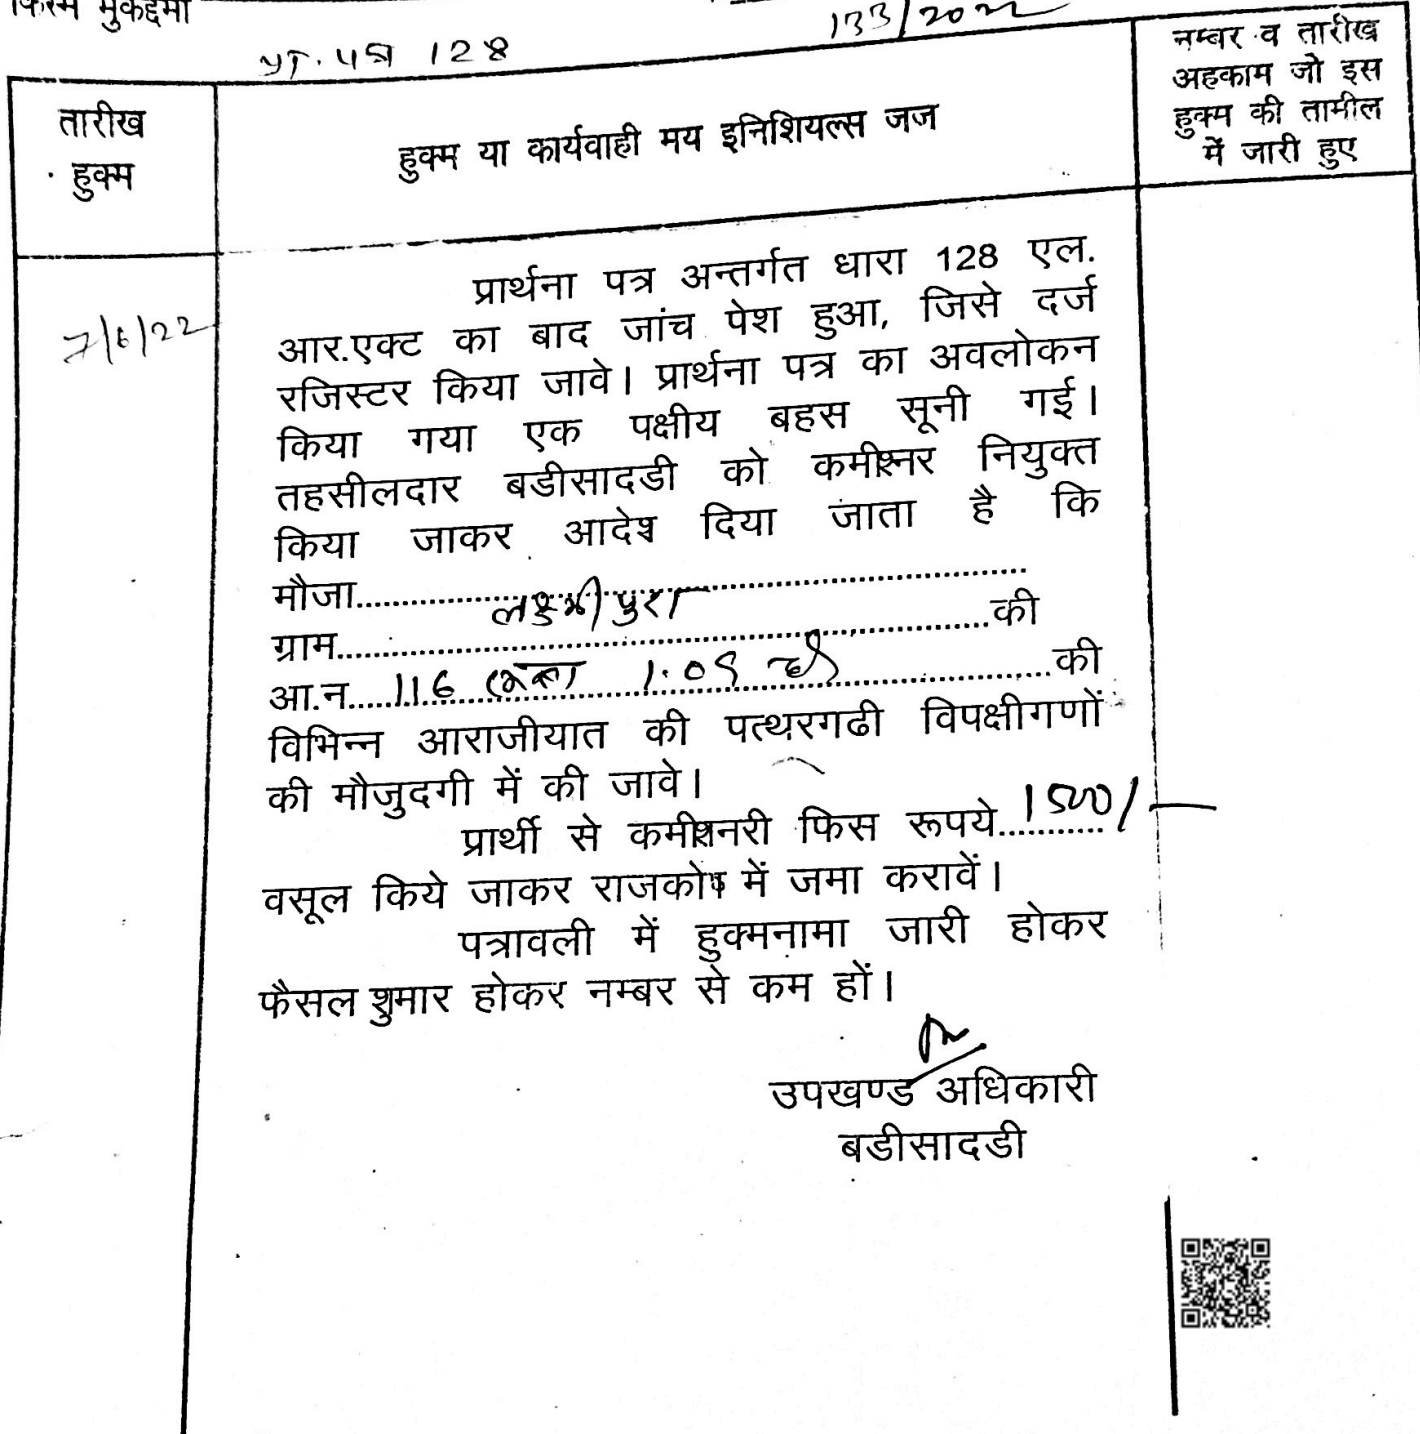 किस्म मुकद्दमा
133/2022
प्रा. पत्र 128
तारीख
हुक्म
हुक्म या कार्यवाही मय इनिशियल्स जज
नम्बर व तारीख
अहकाम जो इस
हुक्म की तामील
में जारी हुए
7/6/22
प्रार्थना पत्र अन्तर्गत धारा 128 एल.
आर.एक्ट का बाद जांच पेश हुआ, जिसे दर्ज
रजिस्टर किया जावे। प्रार्थना पत्र का अवलोकन
किया गया एक पक्षीय बहस सूनी गई।
तहसीलदार बडीसादडी को कमीश्नर नियुक्त
किया जाकर आदेश दिया जाता है कि
मौजा....................
लक्ष्मीपुरा
ग्राम....................की
आ.न....116 रकबा 1.09 है....................की
विभिन्न आराजीयात की पत्थरगढी विपक्षीगणों
की मौजुदगी में की जावे।
प्रार्थी से कमीशनरी फिस रूपये..1500/-
वसूल किये जाकर राजकोष में जमा करावें।
पत्रावली में हुक्मनामा जारी होकर
फैसल शुमार होकर नम्बर से कम हों।
उपखण्ड अधिकारी
बडीसादडी